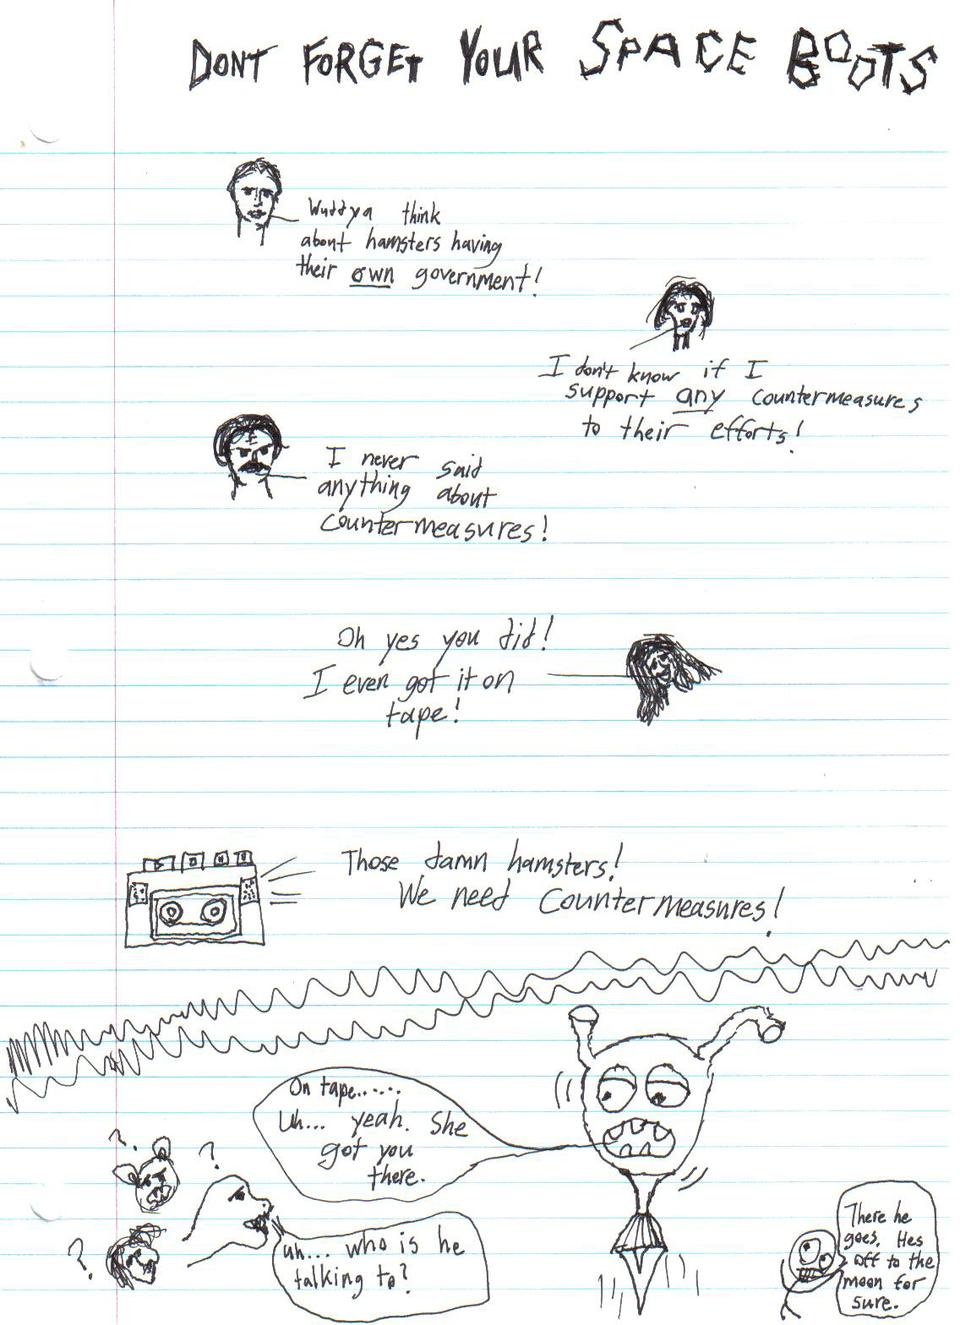 DONT FORGET YOUR SPACE BOOTS
Wuddya think
about hamsters having
their own government!
I don't know if I
support any countermeasures
to their efforts!
I never said
anything about
countermeasures!
Oh yes you did!
I even got it on
tape!
Those damn hamsters!
We need Countermeasures!
On tape......
Uh... yeah. She
got you
there.
?
?
?
uh... who is he
talking to?
There he
goes. Hes
off to the
moon for
sure.